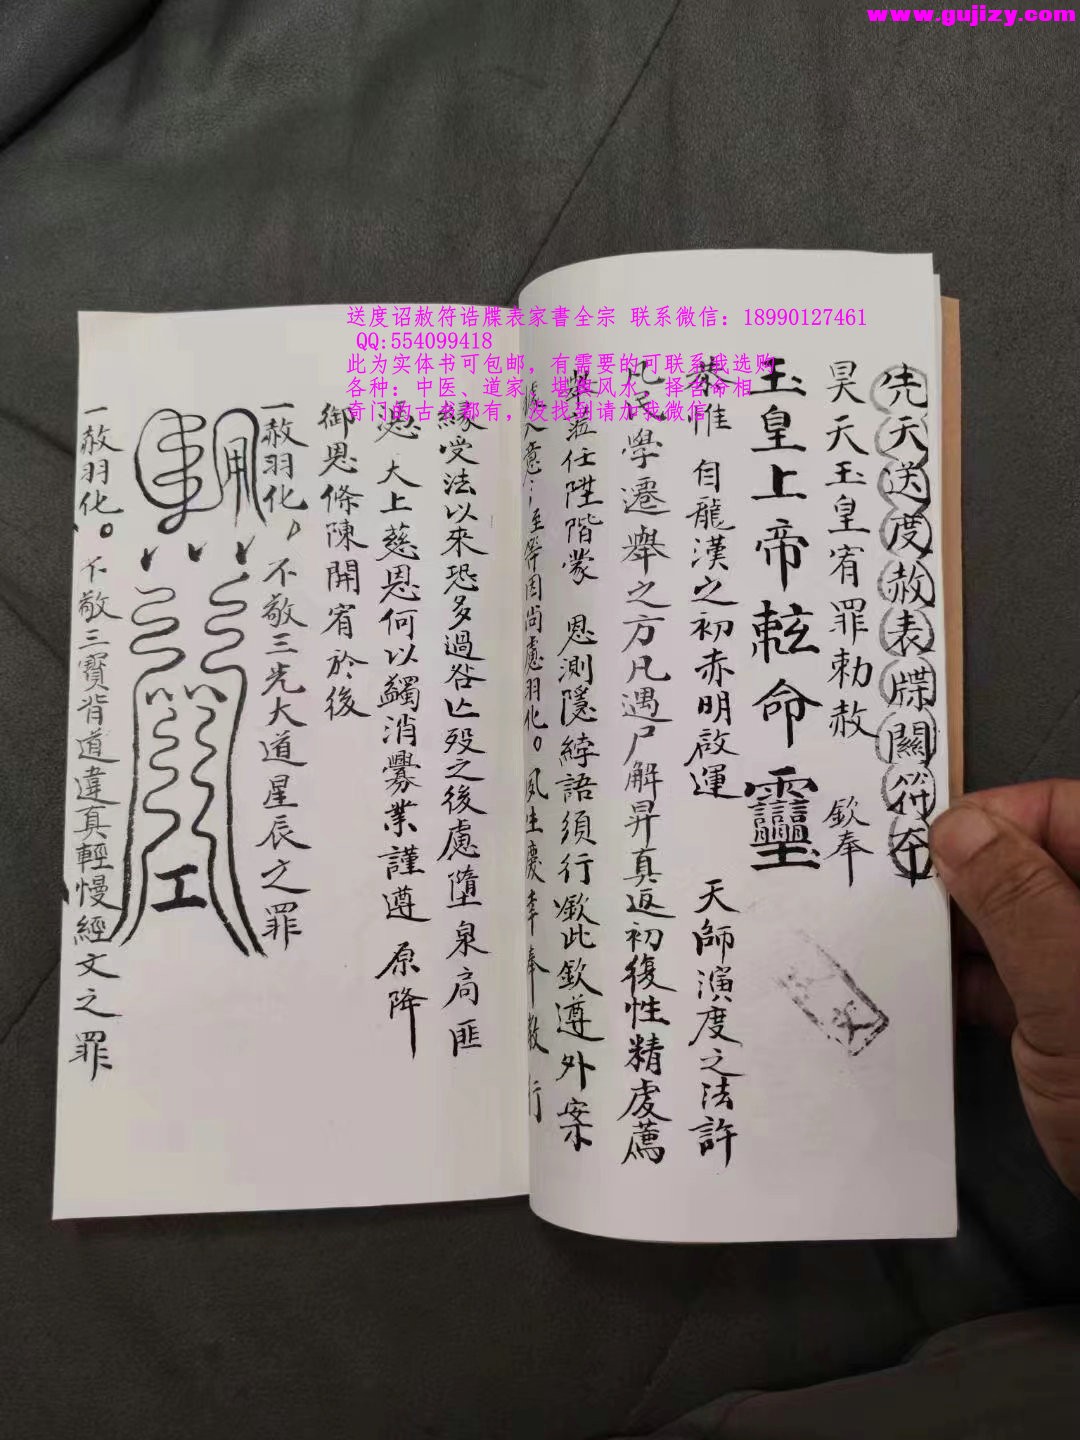 www.gujizy.com
送度诏赦符诰牒表家書全宗 联系微信：18990127461
QQ:554099418
此为实体书可包邮，有需要的可联系我选购
各种：中医、道家、堪舆风水、择吉命相
奇门的古书都有，没找到请加我微信
先天送度赦表牒關符夲
昊天玉皇宥罪勅赦 欽奉
玉皇上帝 命
恭惟 自龍漢之初赤明啟運 天師演度之法許
凡民學遷舉之方凡遇尸解昇真返初復性精虔薦
任陞階蒙 恩測隱 語須行欽此欽遵外案
意 至 等因尚慮羽化。夙生 奉教 行
緣受法以來恐多過咎亡殁之後慮墮泉扃匪
遇 大上慈恩何以蠲消釁業謹遵 原降
御恩條陳開宥於後
一赦羽化。不敬三光大道星辰之罪
一赦羽化。不敬三寶背道違真輕慢經文之罪